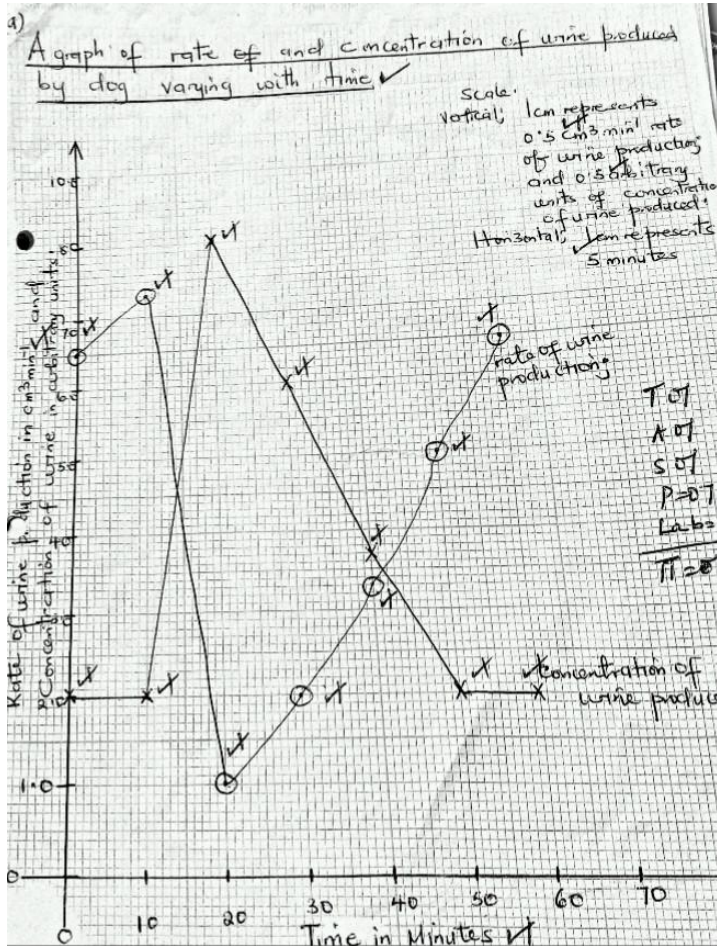 a)
A graph of rate of and concentration of urine produced
by dog varying with time ✓
Scale.
Vertical; 1cm represents
0.5 cm3 min-1 rate
of urine production;
and 0.5 arbitrary
units of concentratio
of urine produced.
Horizontal; 1cm represents
5 minutes
Rate of urine production in cm3min-1 and
Concentration of urine in arbitrary units.
8.0
7.0
6.0
5.0
4.0
2.0
1.0
0
rate of urine
production;
Concentration of
urine produce
T 01
A 01
S 01
P=07
Labs
0
10
20
30
40
50
60
70
Time in Minutes